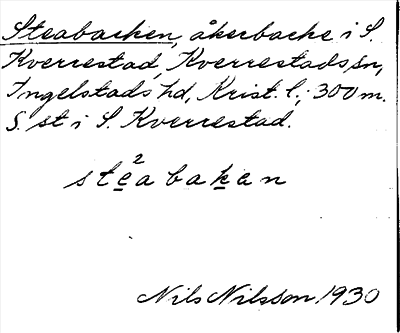 Steabacken, åkerbacke i S.
Kverrestad, Kverrestads sn,
Ingelstads hd, Krist. l., 300 m.
S. st i S. Kverrestad.
ste²abaken
Nils Nilsson. 1930